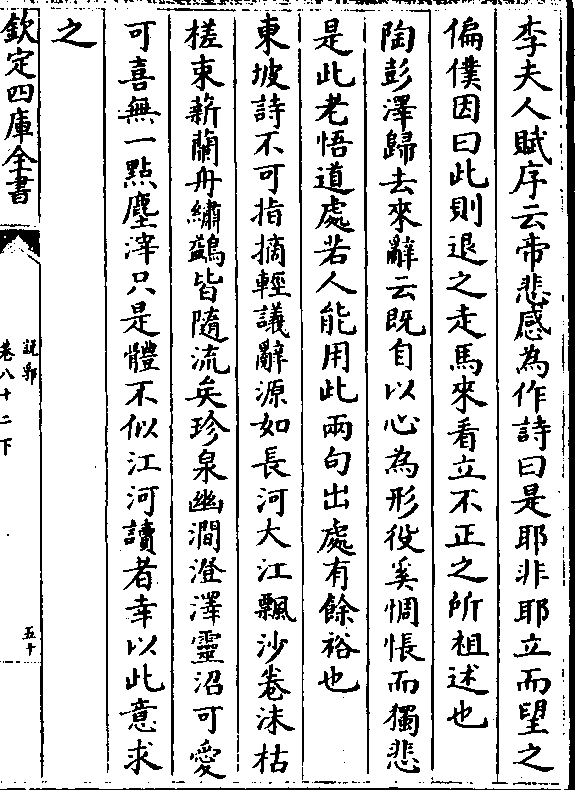 李夫人賦序云帝悲感為作詩曰是耶非耶立而望之
偏僕因曰此則退之走馬來看立不正之所祖述也
陶彭澤歸去來辭云既自以心為形役奚惆悵而獨悲
是此老悟道處若人能用此兩句出處有餘裕也
東坡詩不可指摘輕議辭源如長河大江飄沙卷沫枯
槎束薪蘭舟繡鷁皆隨流矣珍泉幽澗澄澤靈沼可愛
可喜無一點塵滓只是體不似江河讀者幸以此意求
之
欽定四庫全書
說郛
卷八十二下
五十